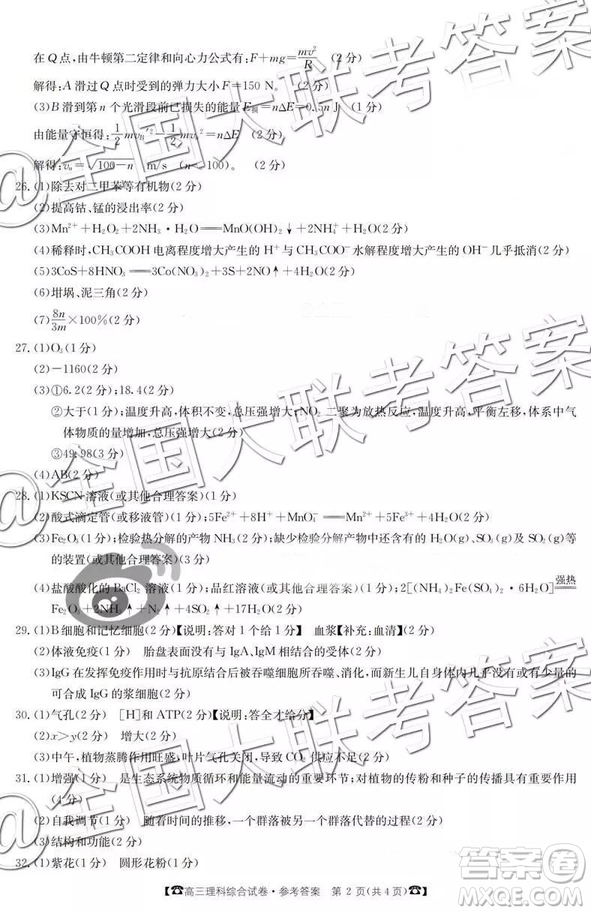 在 Q 点，由牛顿第二定律和向心力公式有：F+mg=mv²/R (2分)
解得：A 滑过 Q 点时受到的弹力大小 F=150 N。 (2分)
(3)B 滑到第 n 个光滑段前已损失的能量 E损=nΔE=0.5n J (1分)
由能量守恒得：
解得：vₙ=√(100-n) m/s (n<100)。 (2分)
26.(1)除去对二甲苯等有机物(2分)
(2)提高钴、锰的浸出率(2分)
(3)Mn²⁺+H₂O₂+2NH₃·H₂O═MnO(OH)₂↓+2NH₄⁺+H₂O(2分)
(4)稀释时，CH₃COOH 电离程度增大产生的 H⁺与 CH₃COO⁻水解程度增大产生的 OH⁻几乎抵消(2分)
(5)3CoS+8HNO₃═3Co(NO₃)₂+3S+2NO↑+4H₂O(2分)
(6)坩埚、泥三角(2分)
(7)8n/3m×100%(2分)
27.(1)O₂(1分)
(2)-1160(2分)
(3)①6.2(2分)；18.4(2分)
②大于(1分)；温度升高，体积不变，总压强增大；NO₂ 二聚为放热反应，温度升高，平衡左移，体系中气
体物质的量增加，总压强增大(2分)
③49；98(2分)
(4)AB(2分)
28.(1)KSCN 溶液(或其他合理答案)(1分)
(2)酸式滴定管(或移液管)(1分)；5Fe²⁺+8H⁺+MnO₄⁻═Mn²⁺+5Fe³⁺+4H₂O(2分)
(3)Fe₂O₃(1分)；检验热分解的产物 NH₃(2分)；缺少检验产物中可能还含有的 H₂O(g)、SO₃(g)及 SO₂(g)等
的装置(或其他合理答案)(3分)
(4)盐酸酸化的 BaCl₂ 溶液(1分)；品红溶液(或其他合理答案)(1分)；2[(NH₄)₂Fe(SO₄)₂·6H₂O]═强热
Fe₂O₃+2NH₃↑+N₂↑+4SO₂↑+17H₂O(2分)
29.(1)B 细胞和记忆细胞(2分)【说明：答对 1 个给 1 分】 血浆【补充：血清】(2分)
(2)体液免疫(1分) 胎盘表面没有与 IgA、IgM 相结合的受体(2分)
(3)IgG 在发挥免疫作用时与抗原结合后被吞噬细胞吞噬、消灭，而婴儿在出生后三个月内体内几乎没有
可合成 IgG 的浆细胞(2分)
30.(1)气孔(2分) [H]和 ATP(2分)【说明：答全才给分】
(2)x>y(2分) 增大(2分)
(3)中午，植物蒸腾作用旺盛，叶片气孔关闭，导致 CO₂ 供应不足(2分)
31.(1)增强(1分) 是生态系统物质循环和能量流动的重要一环；对植物的传粉和种子的传播具有重要作用
(4分)
(2)自我调节(1分) 随着时间的推移，一个群落被另一个群落代替的过程(2分)
(3)结构和功能(2分)
32.(1)紫花(1分) 圆形花粉(1分)
☎高三理科综合试卷·参考答案 第 2 页(共 4 页)☎
@全国大联考答案
@全国大联考答案
@全国大联考答案
答案圈